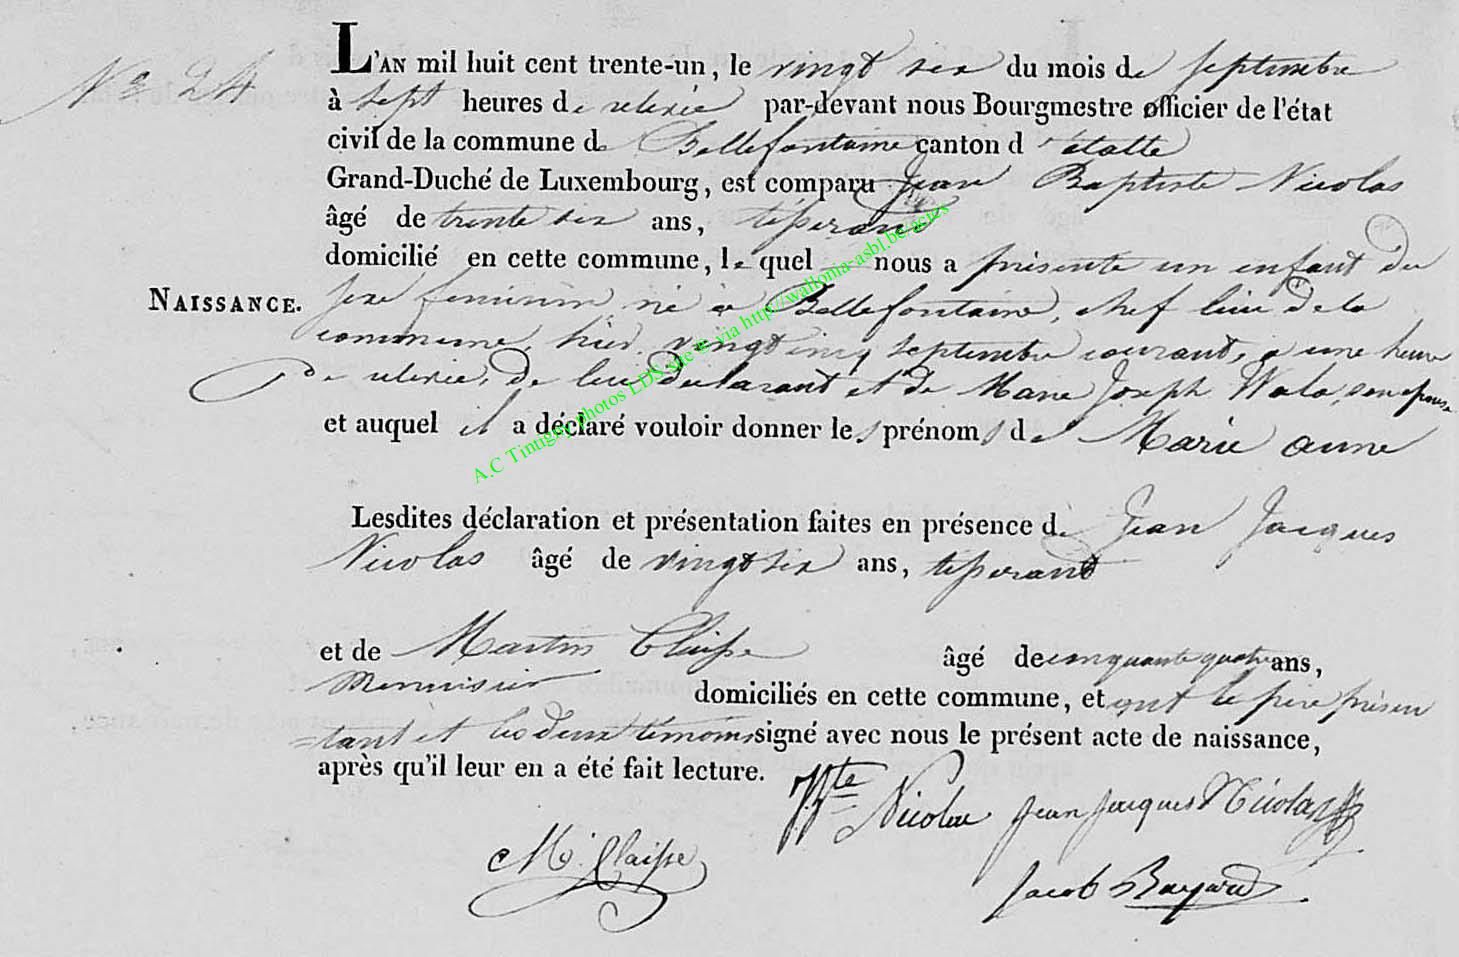 N° 24
L'AN mil huit cent trente-un, le vingt six du mois de Septembre
à sept heures de relevée par-devant nous Bourgmestre officier de l'état
civil de la commune de Bellefontaine canton d'étalle
Grand-Duché de Luxembourg, est comparu Jean Baptiste Nicolas
âgé de trente six ans, tisserand
domicilié en cette commune, le quel nous a présenté un enfant du
NAISSANCE. sexe feminin, né à Bellefontaine, chef lieu de la
commune, hier vingt cinq septembre courant, à une heure
de relevée, de lui déclarant et de Marie Joseph Wala, son épouse
et auquel il a déclaré vouloir donner les prénoms de Marie anne
Lesdites déclaration et présentation faites en présence de Jean Jacques
Nicolas âgé de vingt six ans, tisserand
et de Martin Claisse âgé de cinquante quatre ans,
Menuisier domiciliés en cette commune, et ont le père présen
=tant et les deux témoins signé avec nous le présent acte de naissance,
après qu'il leur en a été fait lecture.
Bte Nicolas Jean Jacques Nicolas
M. Claisse
Jacob Bayard
A.C Tintigny photos LDS site © via http://wallonia-asbl.be/actes